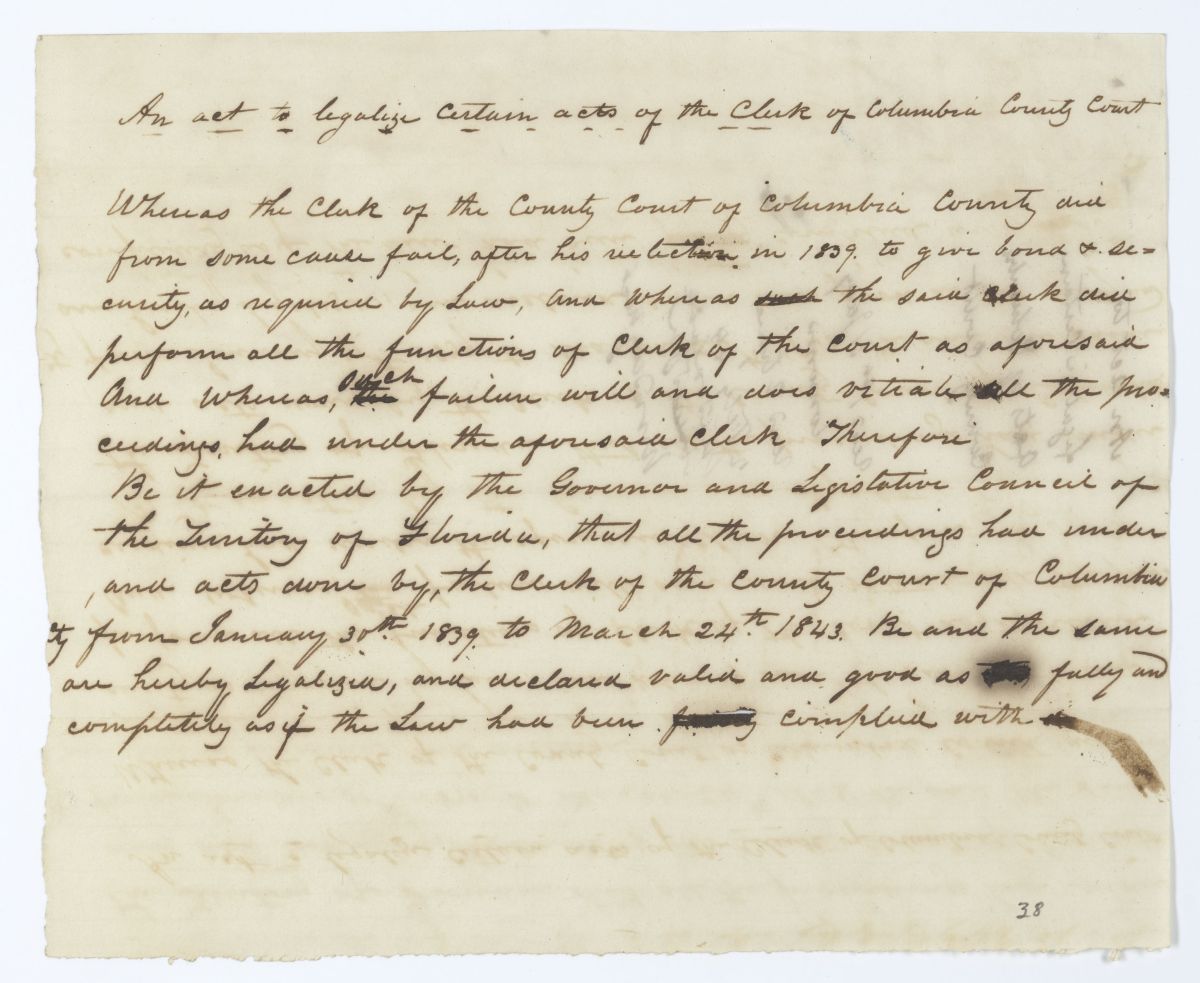 An act to legalize certain acts of the Clerk of Columbia County Court
Whereas the Clerk of the County Court of Columbia County did
from some cause fail, after his relection in 1839. to give bond & se=
curity, as required by Law, And Whereas such the said Clerk did
perform all the functions of Clerk of the Court as aforesaid
And Whereas, the such failure will and does vitiate all the pro=
ceedings, had under the aforesaid Clerk Therefore
Be it enacted by the Governor and Legislative Council of
the Territory of Florida, that all the proceedings had under
, and acts done by, the Clerk of the County Court of Columbia
Cty from January 30th. 1839. to March 24th. 1843. Be and the same
are hereby Legalized, and declared valid and good as fully and
completely as if the Law had been complied with
38